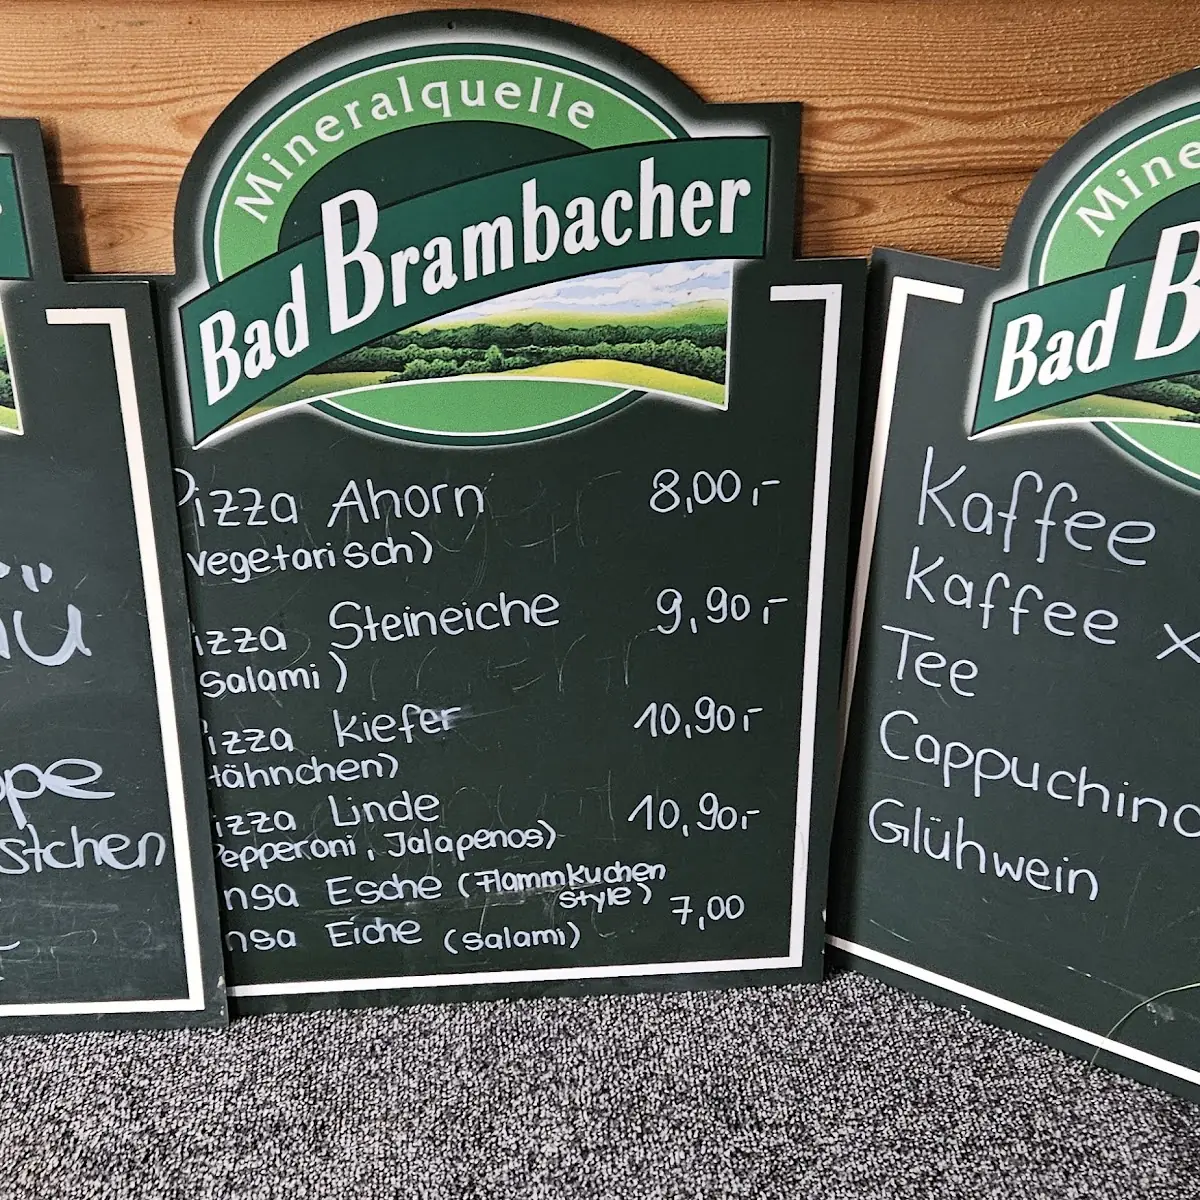 Mineralquelle
Bad Brambacher
Pizza Ahorn 8,00,-
vegetarisch)
izza Steineiche 9,90,-
Salami)
izza Kiefer 10,90,-
Hähnchen)
izza Linde 10,90,-
Pepperoni, Jalapenos)
nsa Esche (Flammkuchen
style)
nsa Eiche (Salami) 7,00
ü
ppe
stchen
Mine
Bad B
Kaffee
Kaffee x
Tee
Cappuchino
Glühwein